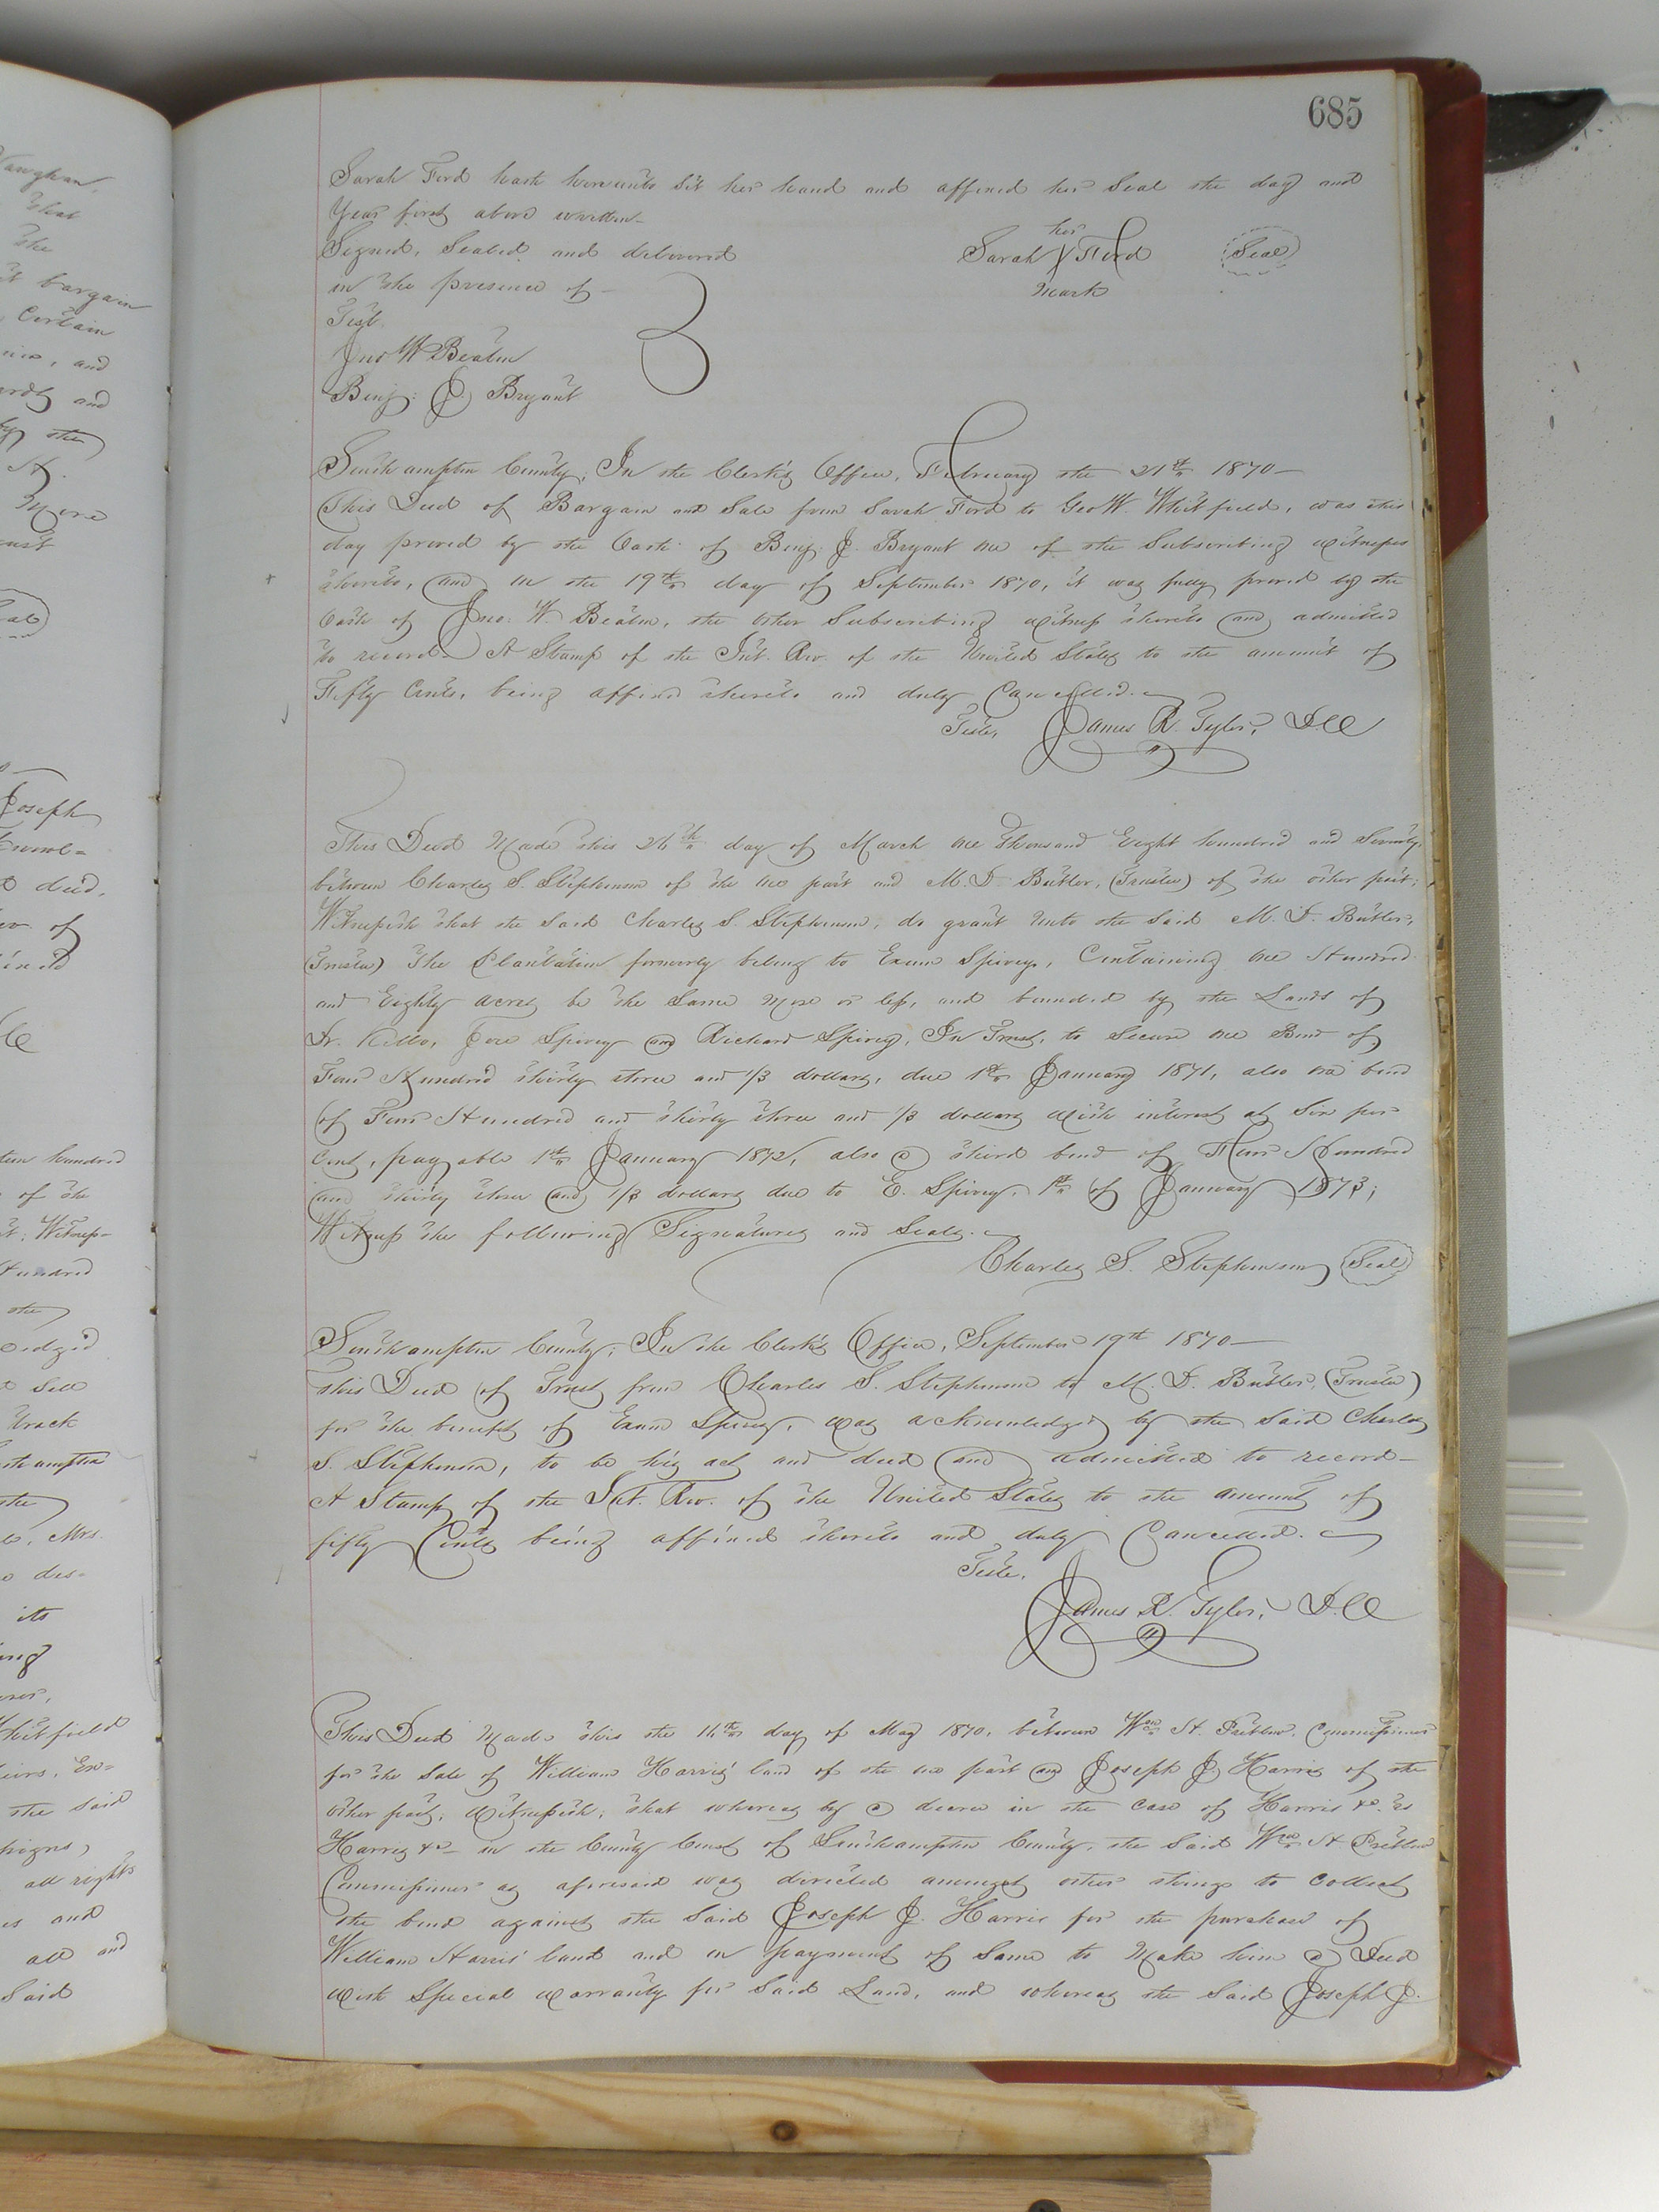 685
Sarah Ford hath hereunto Set her hand and affixed her Seal the day and
Year first above written—
Signed, Sealed and delivered
in the presence of—
Test.
Jno W Beaton
Benj. J. Bryant
her
Sarah X Ford Seal
Mark
Southampton County; In the Clerk's Office, February the 21st 1870—
This Deed of Bargain and Sale from Sarah Ford to Geo W. Whitfield, was this
day proved by the Oath of Benj. J. Bryant one of the Subscribing Witnesses
thereto, and on the 19th day of September 1870, it was fully proved by the
Oath of Jno. W. Beaton, the other Subscribing Witness thereto and admitted
to record— A Stamp of the Int. Rev. of the United States to the amount of
Fifty Cents, being affixed thereto and duly Cancelled.
Teste, James R. Tyler, D.C.
This Deed Made this day of March one Thousand Eight hundred and Seventy
between Charles S. Stephenson of the one part and M. D. Butler, (Trustee) of the other part;
Witnesseth that the Said Charles S. Stephenson, do grant unto the Said M. D. Butler,
(Trustee) The Plantation formerly belong to Exum Spivey, Containing one Hundred
and Eighty acres be the Same More or less, and bounded by the Lands of
Spivey and Richard Spivey, In Trust, to Secure one Bond of
Four Hundred thirty three and 1/3 dollars, due 1st January 1871, also one bond
of Four Hundred and thirty three and 1/3 dollars with interest at Six per
Cent, payable 1st January 1872, also a third bond of Four Hundred
and thirty three and 1/3 dollars due to E. Spivey, 1st of January 1873;
Witness the following Signatures and Seals.
Charles S. Stephenson Seal
Southampton County; In the Clerk's Office, September 19th 1870—
This Deed of Trust from Charles S. Stephenson to M. D. Butler, (Trustee)
for the benefit of Exum Spivey, was acknowledged by the Said Charles
S. Stephenson, to be his act and deed and admitted to record—
A Stamp of the Int. Rev. of the United States to the amount of
fifty Cents being affixed thereto and duly Cancelled.
Teste,
James R. Tyler, D.C.
This Deed Made this the day of May 1870, between Wm H. Commissioner
for the Sale of William Harris' land of the one part and Joseph J. Harris of the
other part, Witnesseth; that whereas by a decree in the case of Harris &c. vs
Harris &c— in the County Court of Southampton County, the Said Wm H.
Commissioner as aforesaid was directed amongst other things to Collect
the bond against the Said Joseph J. Harris for the purchase of
William Harris' land and on payment of Same to Make him a Deed
with Special Warranty for Said Land, and whereas the Said Joseph J.